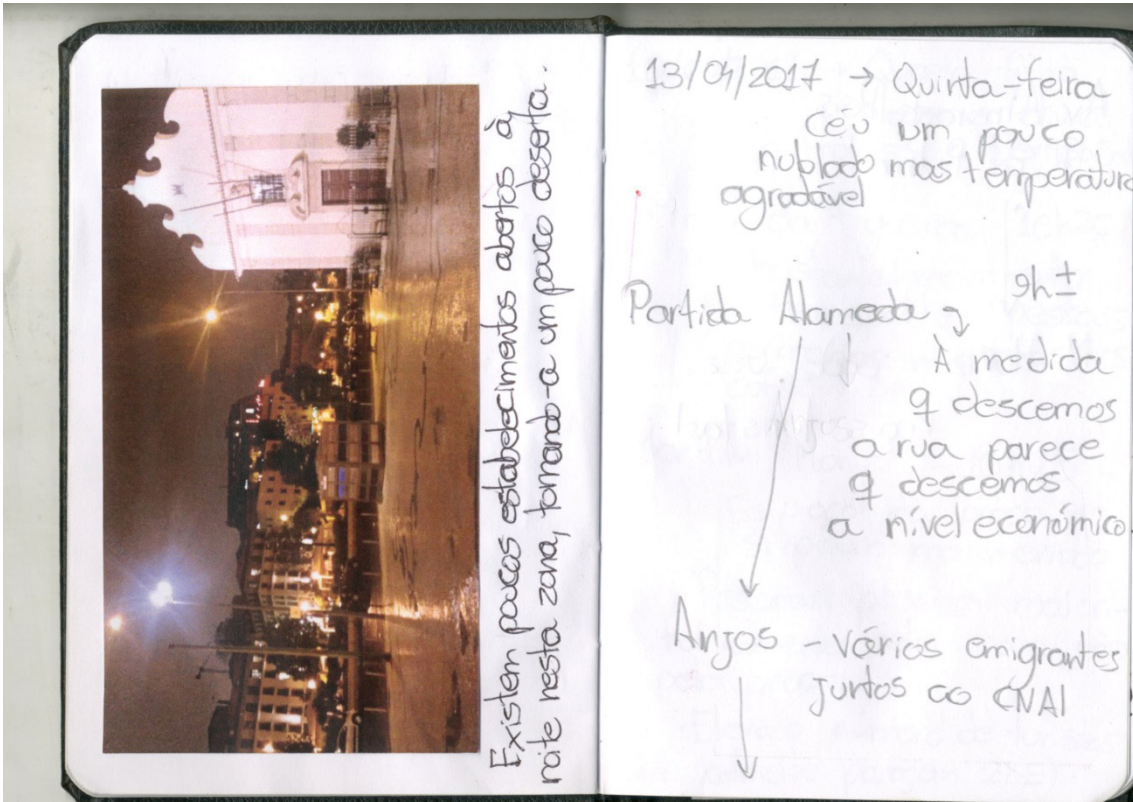 Existem poucos estabelecimentos abertos à
noite nesta zona, tornando-a um pouco deserta.
13/04/2017 → Quinta-feira
Céu um pouco
nublado mas temperatura
agradável
9h ±
Partida Alameda →
À medida
q descemos
a rua parece
q descemos
a nível económico.
Anjos - vários emigrantes
juntos ao CNAI